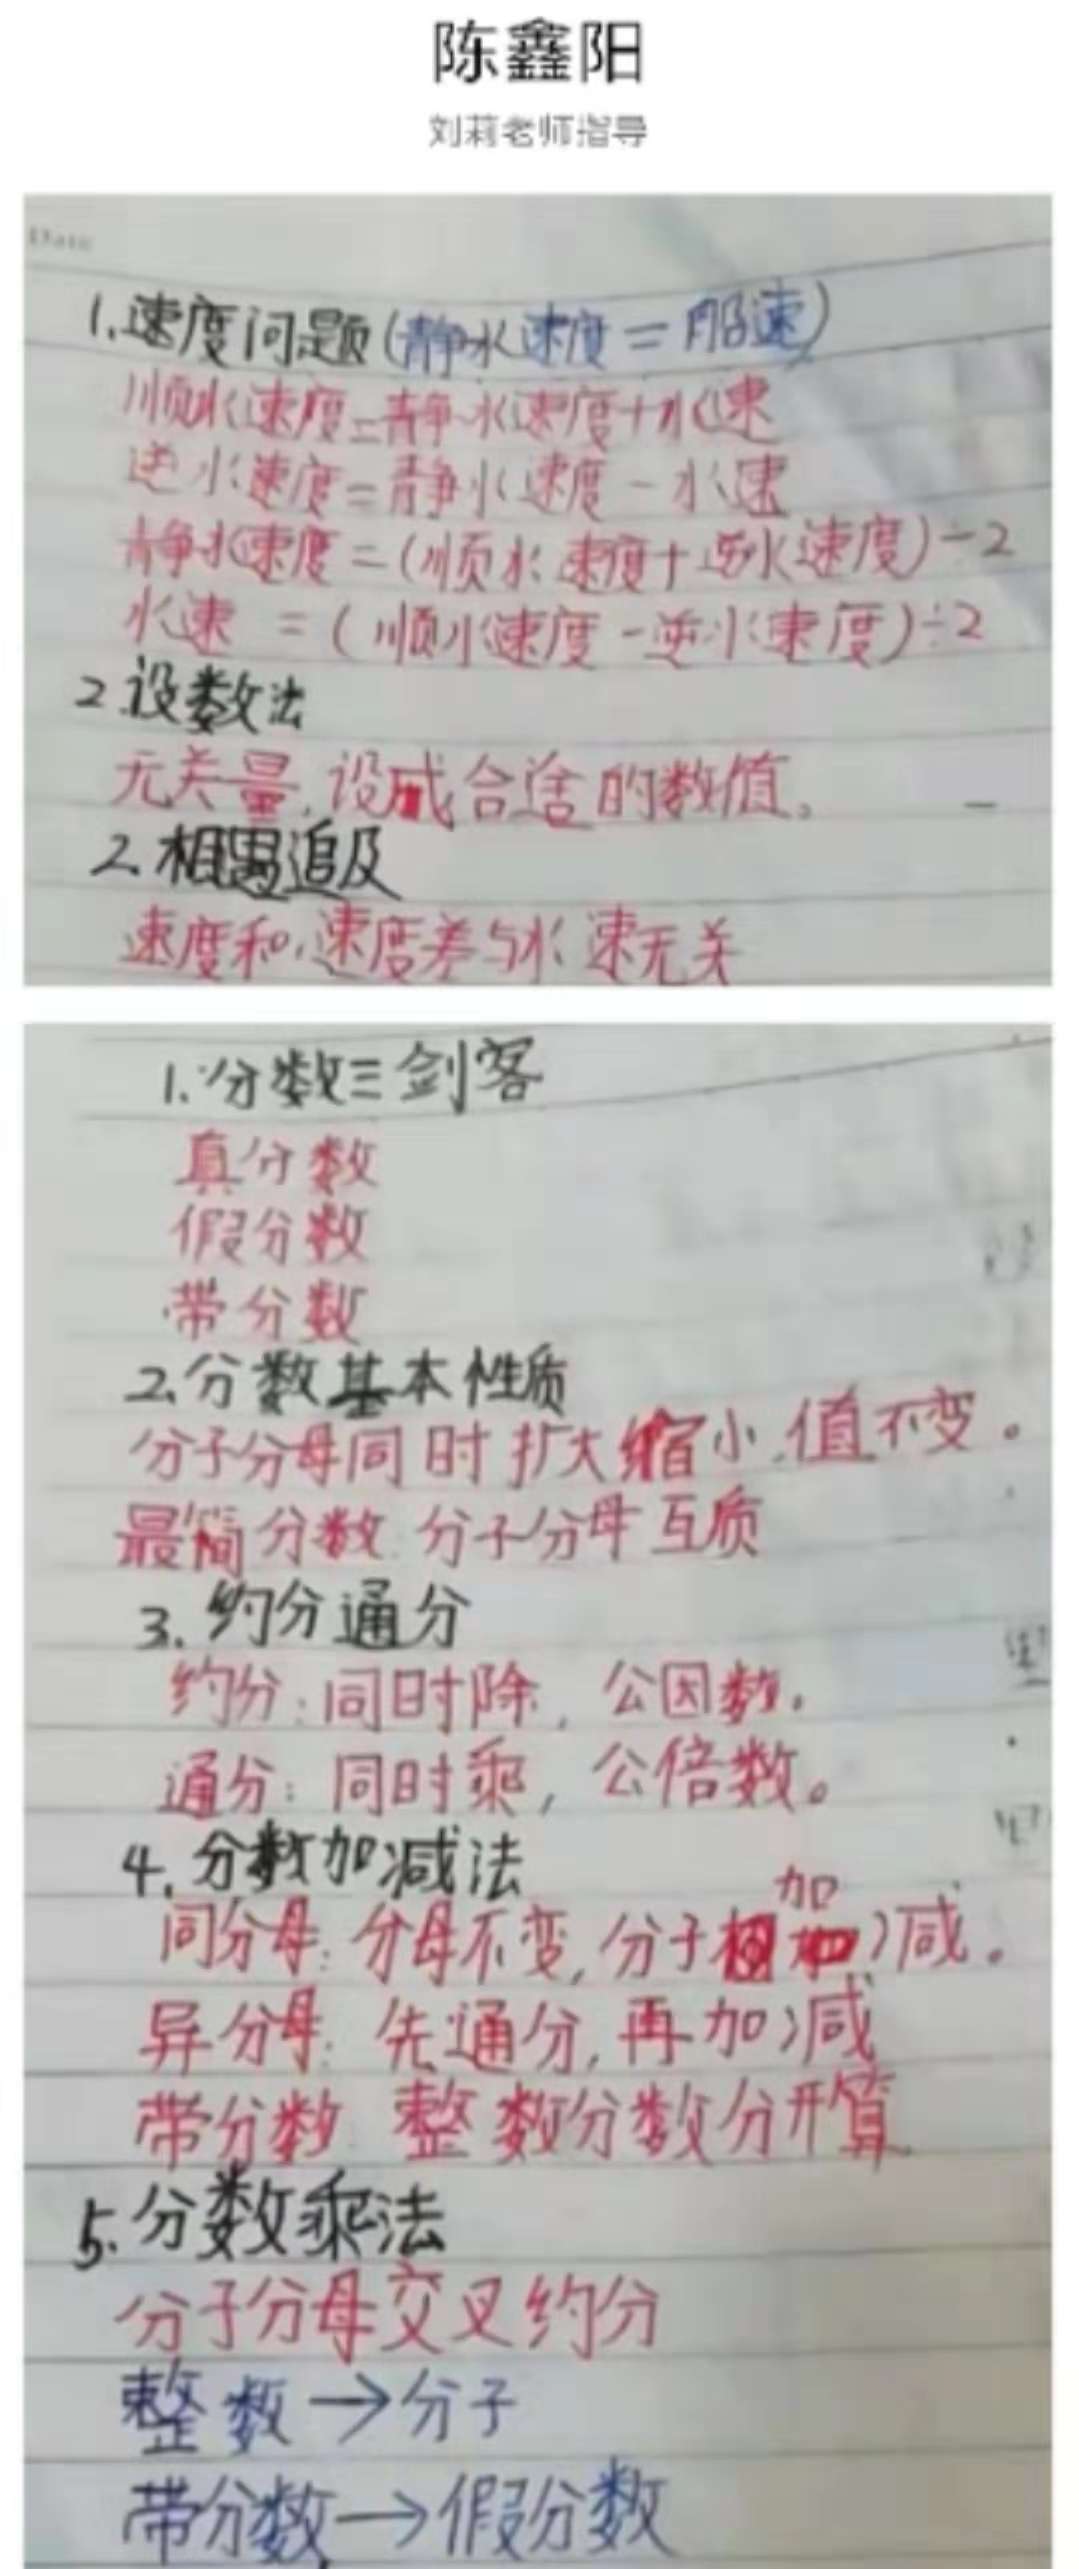 陈鑫阳
刘莉老师指导
Date
1.速度问题(静水速度=船速)
顺水速度=静水速度+水速
逆水速度=静水速度-水速
静水速度=(顺水速度+逆水速度)÷2
水速=(顺水速度-逆水速度)÷2
2.设数法
无关量,设成合适的数值。
2.相遇追及
速度和,速度差与水速无关
1.分数三剑客
真分数
假分数
带分数
2.分数基本性质
分子分母同时扩大缩小,值不变。
最简分数:分子分母互质
3.约分通分
约分:同时除,公因数。
通分:同时乘,公倍数。
4.分数加减法
同分母:分母不变,分子相加减。
异分母:先通分,再加减
带分数:整数分数分开算
5.分数乘法
分子分母交叉约分
整数→分子
带分数→假分数